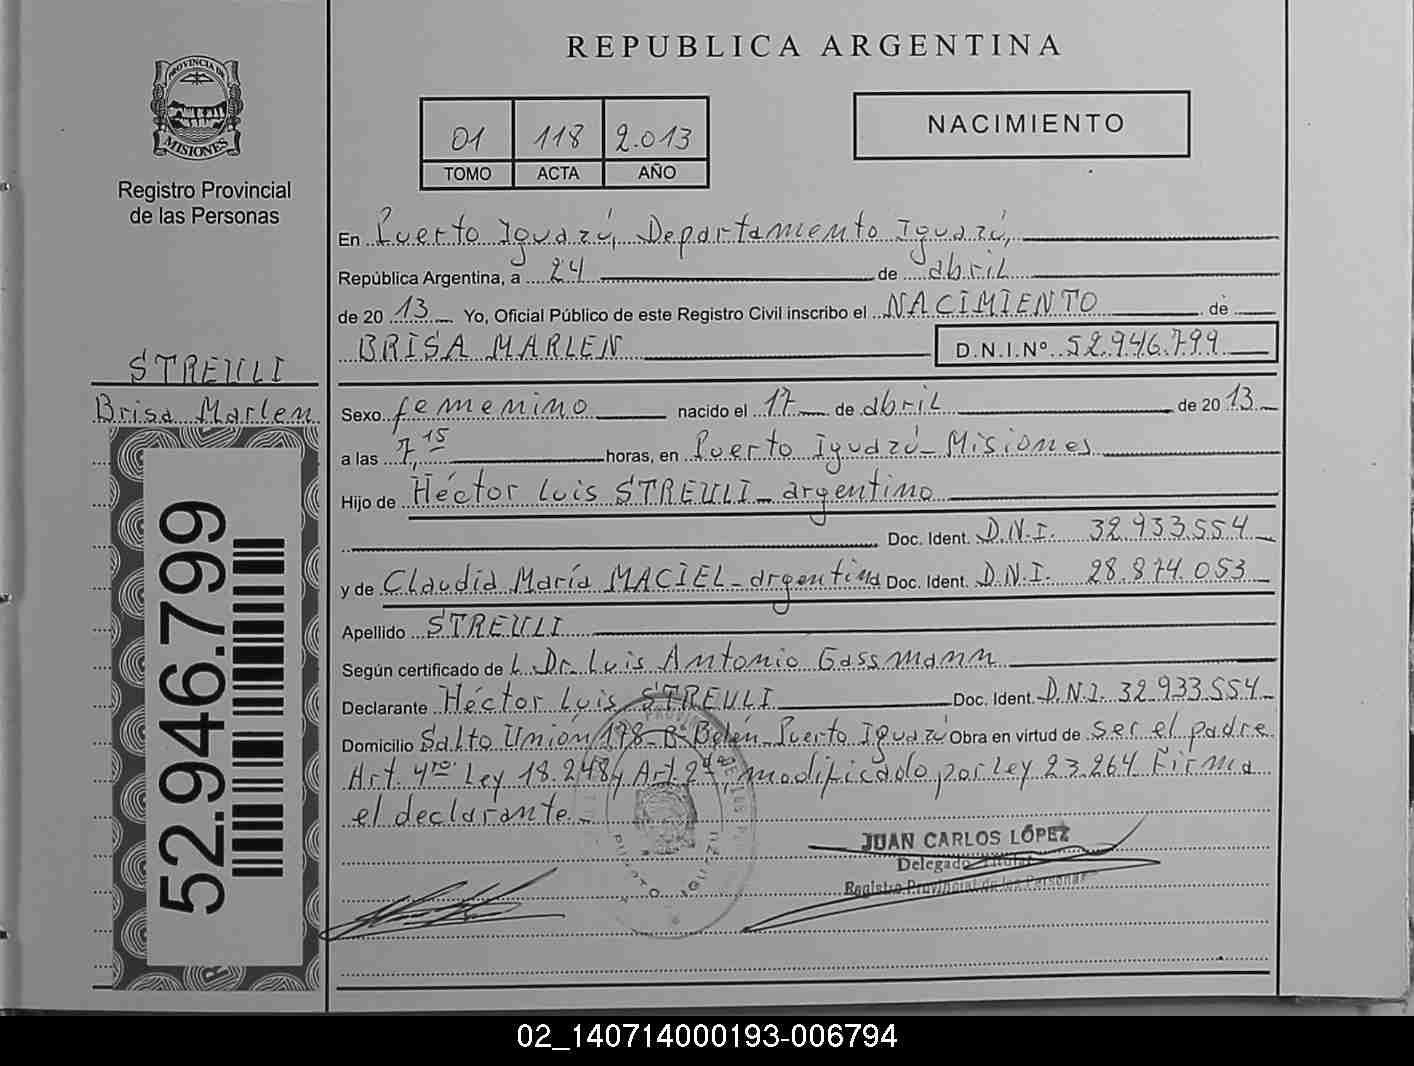 REPUBLICA ARGENTINA
PROVINCIA DE
MISIONES
Registro Provincial
de las Personas
01 118 2.013
TOMO ACTA AÑO
NACIMIENTO
En Puerto Iguazú, Departamento Iguazú,
República Argentina, a 24 de abril
de 20 13 Yo, Oficial Público de este Registro Civil inscribo el NACIMIENTO de
BRISA MARLEN D.N.I.Nº 52.946.799
STREULI
Brisa Marlen
Sexo femenino nacido el 17 de abril de 20 13
a las 7,15 horas, en Puerto Iguazú - Misiones
Hijo de Héctor Luis STREULI - argentino
Doc. Ident. D.N.I. 32.933.554
y de Claudia María MACIEL - argentina Doc. Ident. D.N.I. 28.874.053
Apellido STREULI
Según certificado de L Dr. Luis Antonio Gassmann
Declarante Héctor Luis STREULI Doc. Ident. D.N.I. 32.933.554
Domicilio Salto Unión 178 - Bº Belén - Puerto Iguazú Obra en virtud de ser el padre
Art. 4to. Ley 18.248, Art. 2do, modificado por Ley 23.264 Firma
el declarante.-
52.946.799
JUAN CARLOS LÓPEZ
Delegado Titular
Registro Provincial de las Personas
PUERTO IGUAZU
02_140714000193-006794